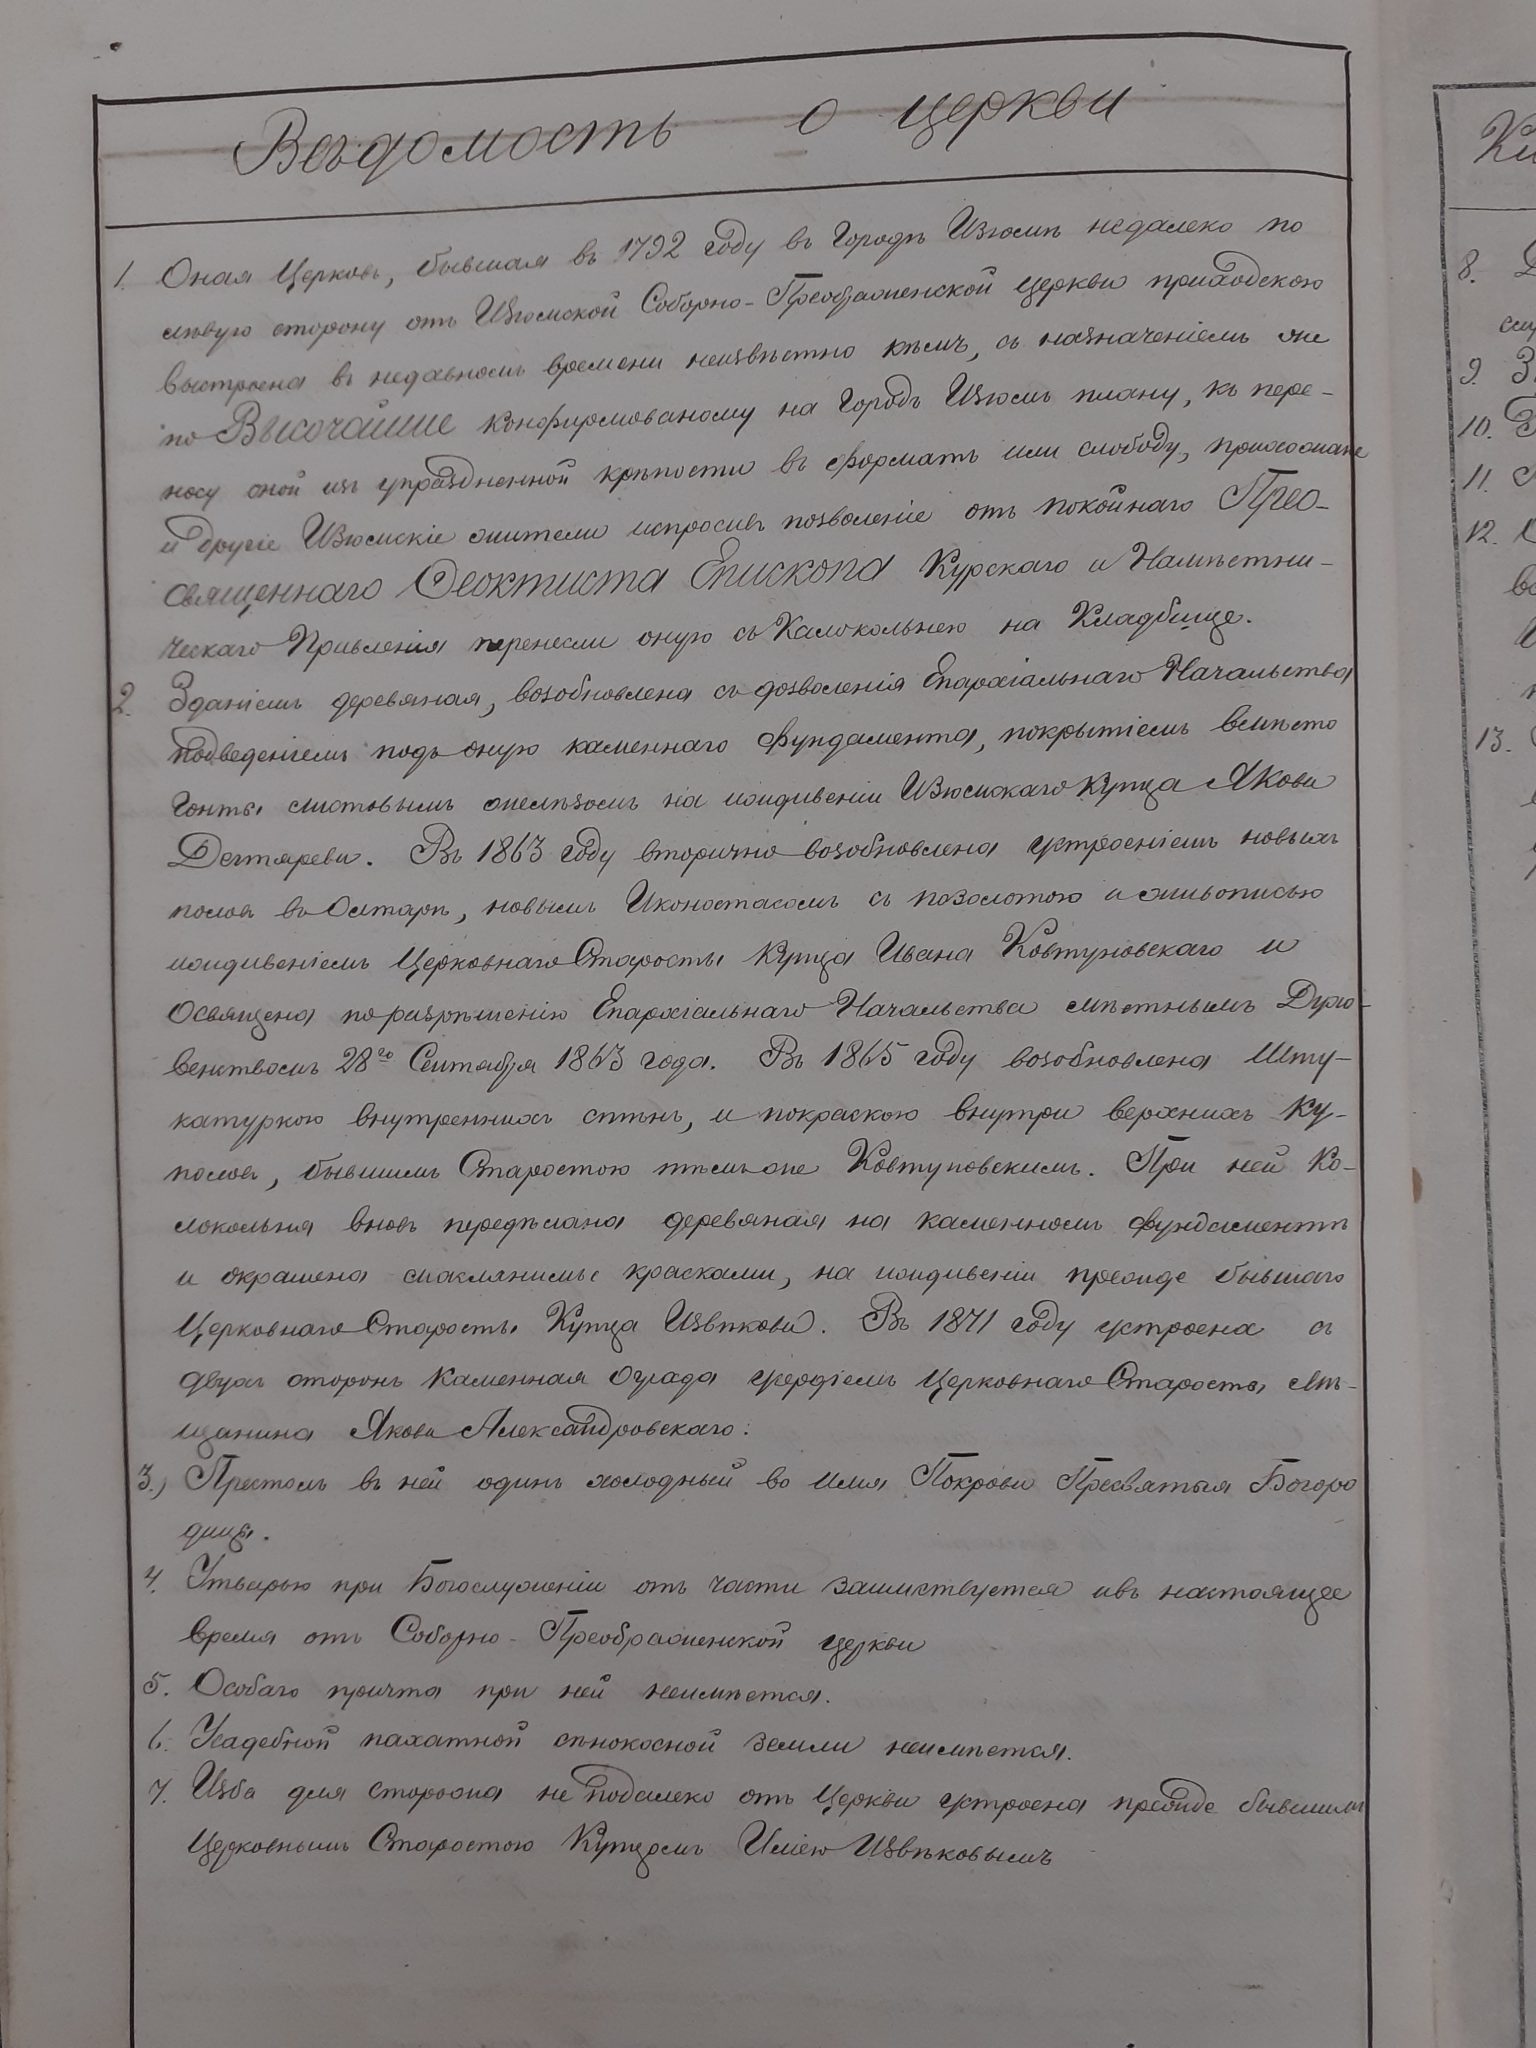 Вѣдомость о церкви
1. Оная Церковь, бывшая въ 1792 году въ Городѣ Изюмѣ недалеко по
лѣвую сторону отъ Изюмской Соборно-Преображенской церкви приходскою
выстроена въ недавномъ времени неизвѣстно кѣмъ, съ назначеніемъ же
по Высочайше конфирмованому на Городъ Изюмъ плану, къ пере-
носу оной изъ упраздненной крѣпости въ форштатъ или слободу, прихожане
и другіе Изюмскіе жители испросивъ позволеніе отъ покойнаго Прео-
священнаго Ѳеоктиста Епископа Курскаго и Намѣстни-
ческаго Правленія перенесли оную съ Калокольнею на Кладбище.
2. Зданіемъ деревяная, возобновлена съ дозволенія Епархіальнаго Начальства
подведеніемъ подъ оную каменнаго фундамента, покрытіемъ вмѣсто
гонты листовымъ желѣзомъ на иждивеніи Изюмскаго купца Якова
Дегтярева. Въ 1863 году вторично возобновлена устроеніемъ новыхъ
половъ въ Олтарѣ, новымъ Иконостасомъ съ позолотою и живописью
иждивеніемъ Церковнаго Старосты Купца Ивана Ковтуновскаго и
Освящена по разрѣшенію Епархіальнаго Начальства мѣстнымъ Духо-
венствомъ 28го Сентября 1863 года. Въ 1865 году возобновлена Шту-
катуркою внутреннихъ стѣнъ, и покраскою внутри верхнихъ Ку-
половъ, бывшимъ Старостою тѣмъ же Ковтуновскимъ. При ней Ко-
локольня вновь передѣлана деревяная на каменномъ фундаментѣ
и окрашена масляными красками, на иждивеніи прежде бывшаго
Церковнаго Старосты Купца Извѣкова. Въ 1871 году устроена съ
двухъ сторонъ каменная ограда усердіемъ Церковнаго Старосты Мѣ-
щанина Якова Александровскаго.
3.) Престолъ въ ней одинъ холодный во имя Покрова Пресвятыя Богоро
дицы.
4. Утварью при Богослуженіи отъ части заимствуется ивъ настоящее
время отъ Соборно-Преображенской церкви
5. Особаго причта при ней неимѣется.
6. Усадебной пахатной сѣнокосной земли неимѣется.
7. Изба для сторожа не подалеко отъ Церкви устроена прежде бывшимъ
Церковнымъ Старостою Купцомъ Ильею Извѣковымъ
8.
9.
10.
11.
12.
13.